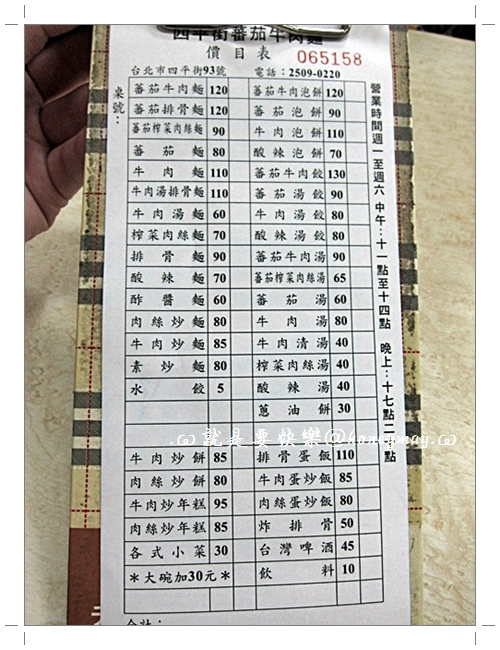 四平街蕃茄牛肉麵
價目表 065158
台北市四平街93號 電話：2509-0220
桌號：
蕃茄牛肉麵 120 蕃茄牛肉泡餅 120
蕃茄排骨麵 120 蕃茄泡餅 90
蕃茄榨菜肉絲麵 90 牛肉泡餅 110
蕃茄麵 80 酸辣泡餅 70
牛肉麵 110 蕃茄牛肉餃 130
牛肉湯排骨麵 110 蕃茄湯餃 90
牛肉湯麵 60 牛肉湯餃 80
榨菜肉絲麵 70 酸辣湯餃 80
排骨麵 90 蕃茄牛肉湯 90
酸辣麵 70 蕃茄榨菜肉絲湯 65
酢醬麵 60 蕃茄湯 60
肉絲炒麵 80 牛肉湯 80
牛肉炒麵 85 牛肉清湯 40
素炒麵 80 榨菜肉絲湯 40
水餃 5 酸辣湯 40
蔥油餅 30
牛肉炒餅 85 排骨蛋飯 110
肉絲炒餅 80 牛肉蛋炒飯 85
牛肉炒年糕 95 肉絲蛋炒飯 80
肉絲炒年糕 85 炸排骨 50
各式小菜 30 台灣啤酒 45
＊大碗加30元＊ 飲料 10
合計：
營業時間週一至週六 中午：十一點至十四點 晚上：十七點二 點
就是要快樂@honeymay